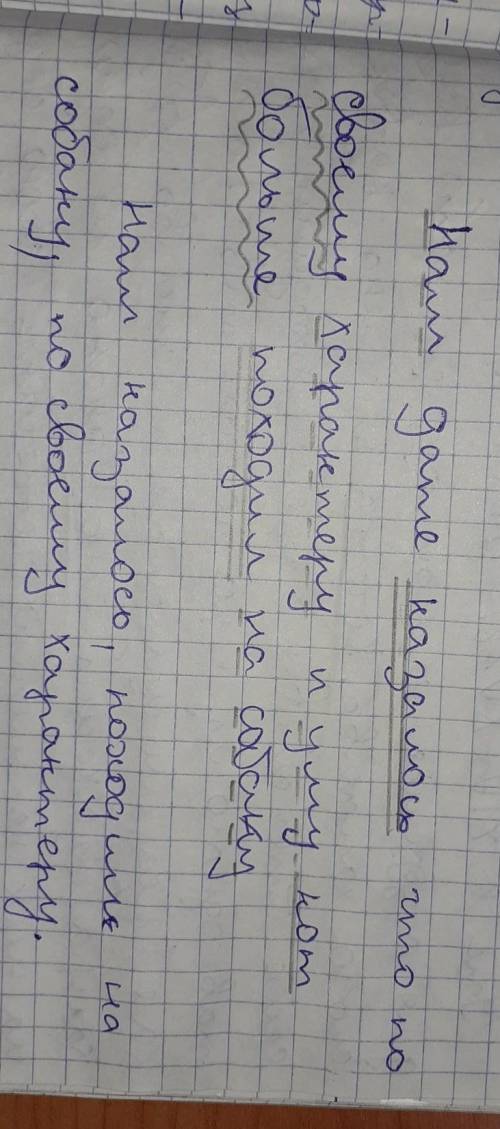 Нам даже казалось что по
своему характеру и уму кот
больше походил на собаку
Нам казалось, походил на
собаку, по своему характеру.